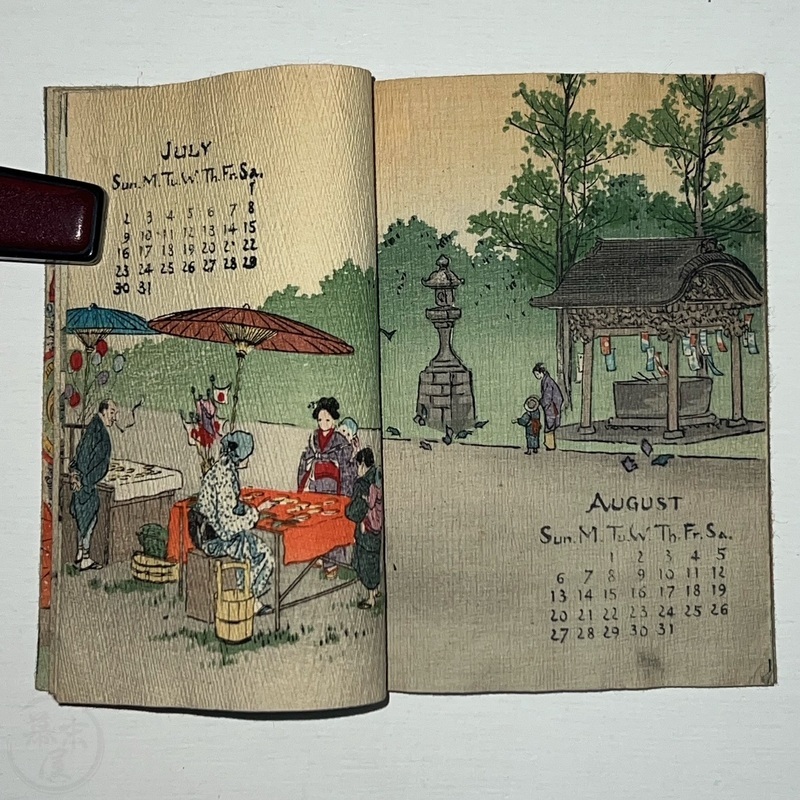 JULY
Sun. M. Tu. W Th. Fr. Sa.
1
2 3 4 5 6 7 8
9 10 11 12 13 14 15
16 17 18 19 20 21 22
23 24 25 26 27 28 29
30 31
AUGUST
Sun. M. Tu. W Th. Fr. Sa.
1 2 3 4 5
6 7 8 9 10 11 12
13 14 15 16 17 18 19
20 21 22 23 24 25 26
27 28 29 30 31
幕末屋